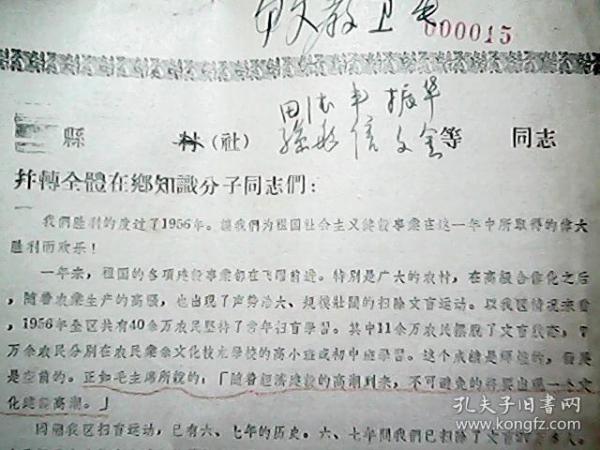 000015
縣 村(社) 等 同志
幷轉全體在鄉知識分子同志們:
我們胜利的度过了1956年。讓我們为祖国社会主义建設事業在这一年中所取得的偉大
胜利而欢乐!
一年來,祖国的各項建設事業都在飞躍前進。特別是广大的农村,在高級合作化之后
,随着农業生产的高漲,也出現了声势浩大、規模壯闊的扫除文盲运动。以我区情况來看
,1956年全区共有40余万农民堅持了常年扫盲學習。其中11余万农民摆脫了文盲狀态,
万余农民分別在农民業余文化技术學校的高小班或初中班學習。这个成績是輝煌的,
是空前的。正如毛主席所說的:「随着經濟建設的高潮到來,不可避免的將要出現一个文
化建設高潮。」
回顧我区扫盲运动,已有六、七年的历史。六、七年間我們已扫除了文盲
孔夫子旧书网
www.kongfz.com